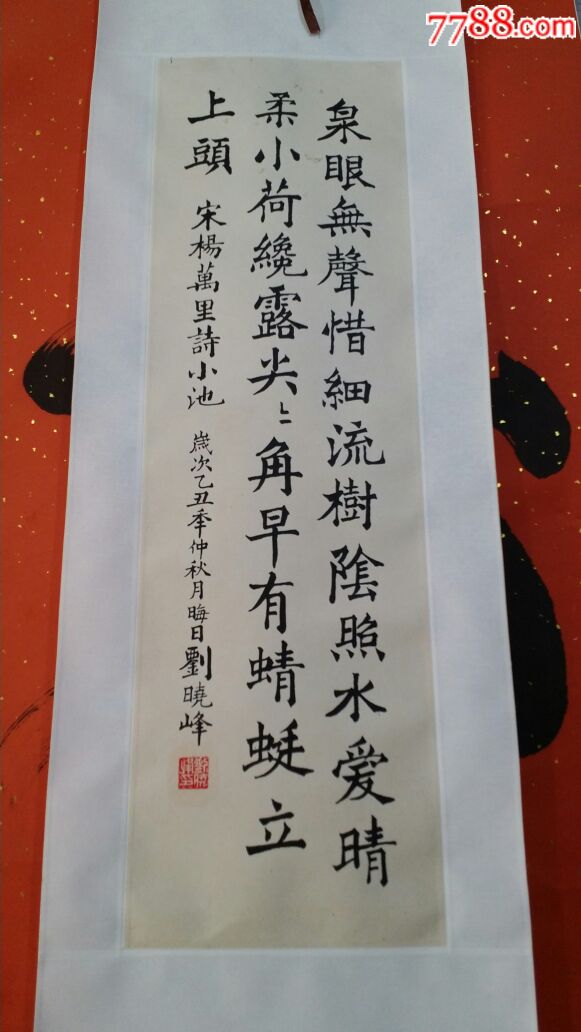 7788.com
泉眼無聲惜細流樹陰照水爱晴
柔小荷纔露尖〻角早有蜻蜓立
上頭 宋楊萬里詩小池 歲次乙丑季仲秋月晦日劉曉峰